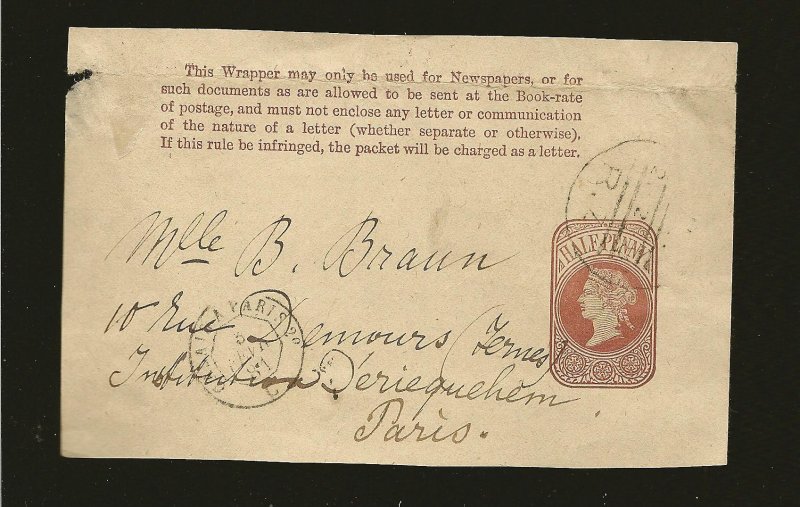 This Wrapper may only be used for Newspapers, or for
such documents as are allowed to be sent at the Book-rate
of postage, and must not enclose any letter or communication
of the nature of a letter (whether separate or otherwise).
If this rule be infringed, the packet will be charged as a letter.
HALFPENNY
Mlle B. Braun
10 Rue Demours (Ternes)
Institution
Paris.
A PARIS